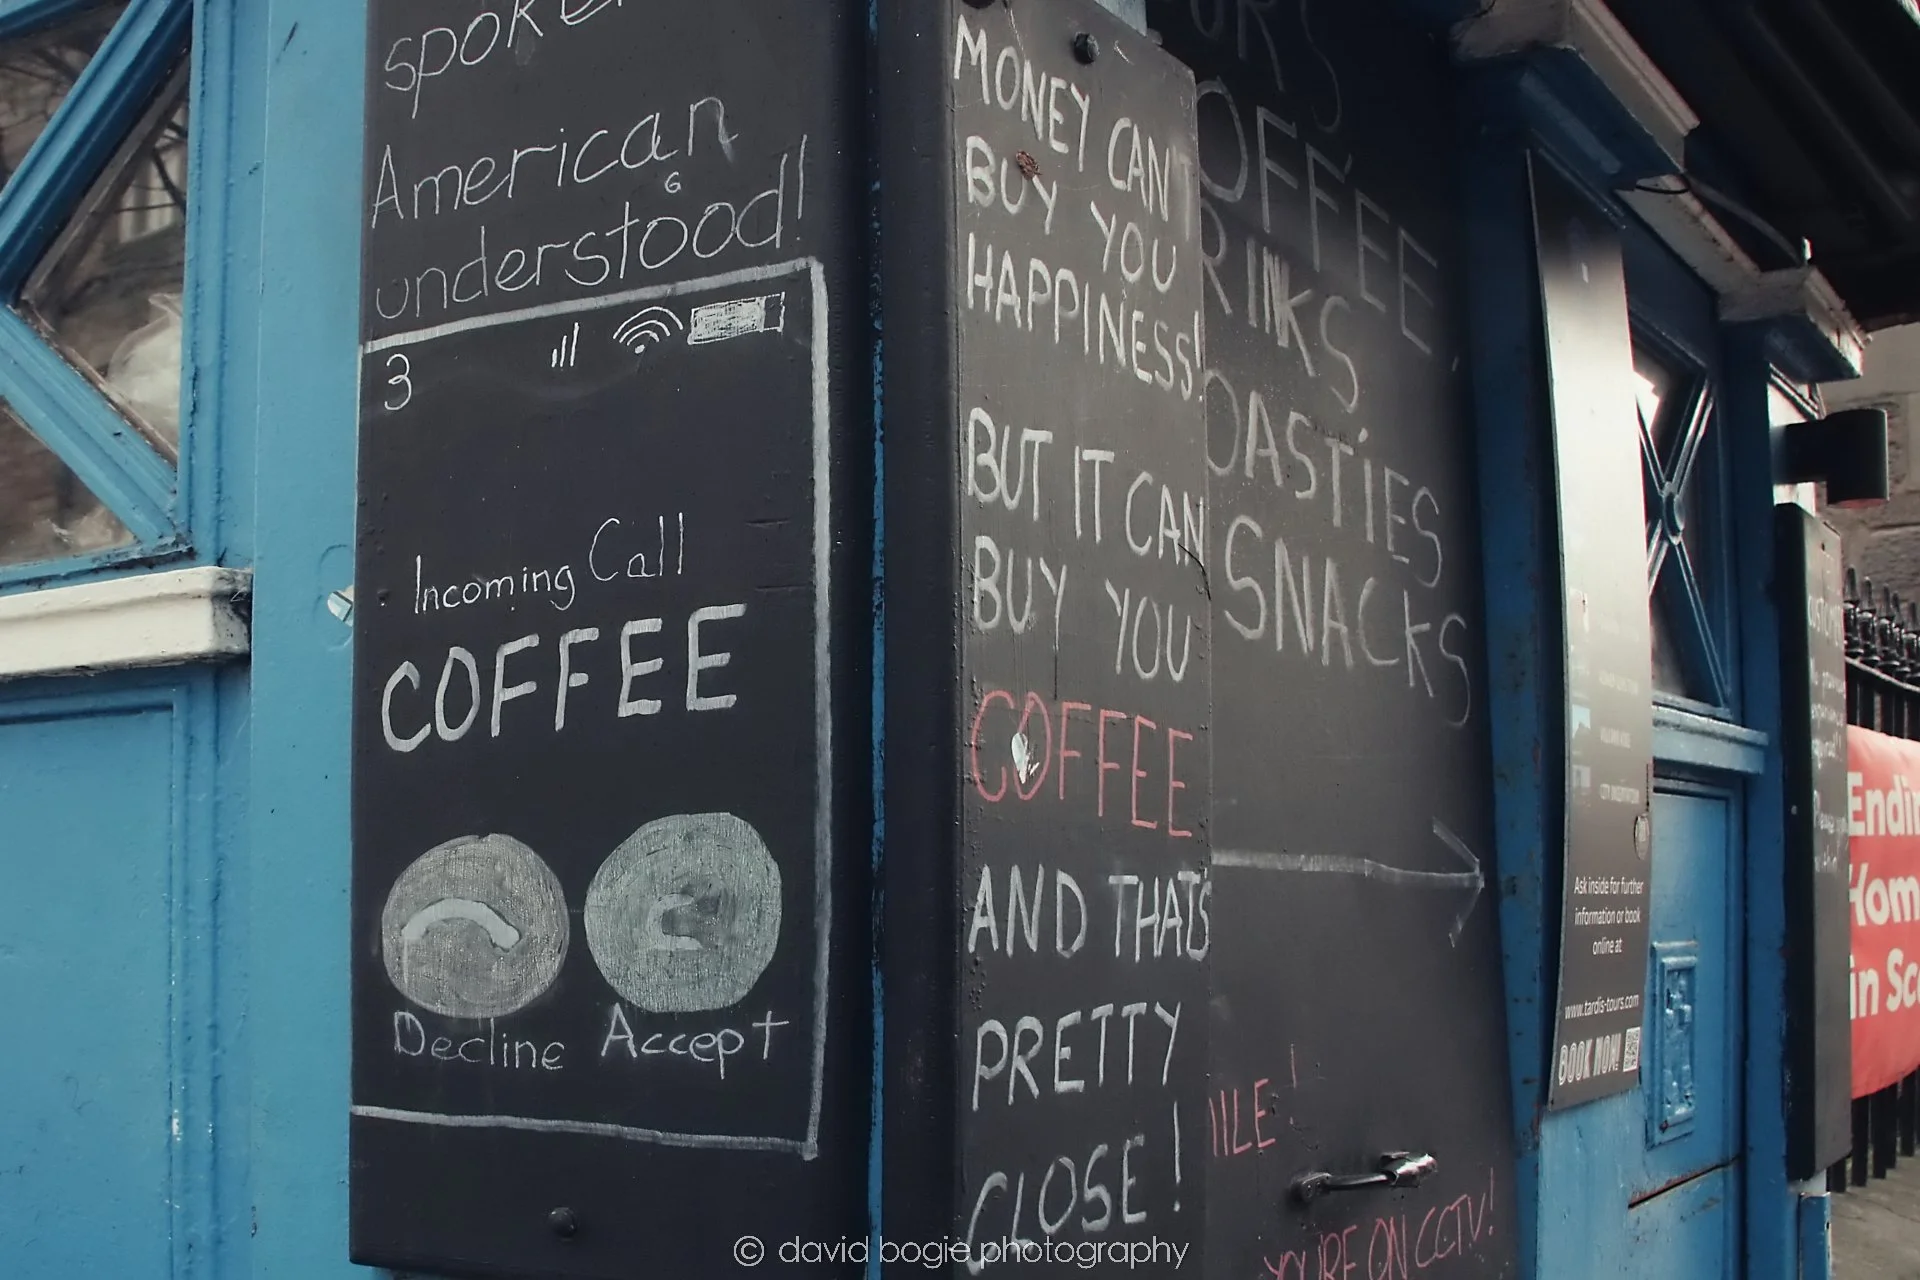 American
understood!
3
Incoming Call
COFFEE
Decline Accept
MONEY CAN'T
BUY YOU
HAPPINESS!
BUT IT CAN
BUY YOU
COFFEE
AND THAT'S
PRETTY
CLOSE!
OFFEE
RINKS
OASTIES
SNACKS
YOU'RE ON CCTV!
Ask inside for further
information or book
online at
www.tardis-tours.com
BOOK NOW!
Endin
Hom
in Sc
© david bogie photography